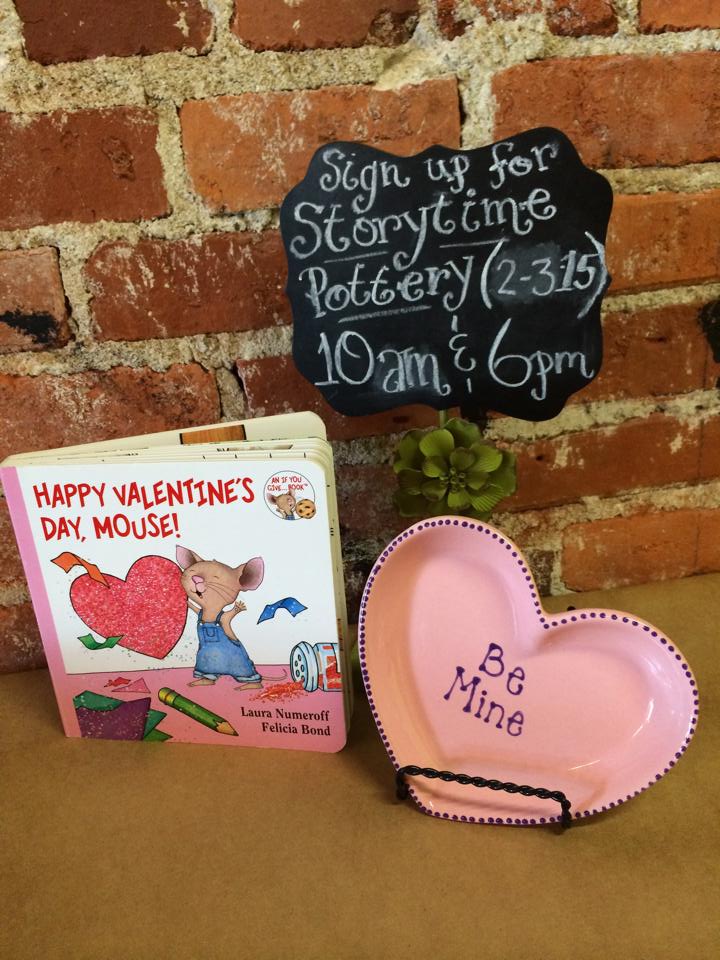 Sign up for
Storytime
Pottery (2-3-15)
10am & 6pm
HAPPY VALENTINE'S
DAY, MOUSE!
AN IF YOU
GIVE... BOOK™
Laura Numeroff
Felicia Bond
Be
Mine